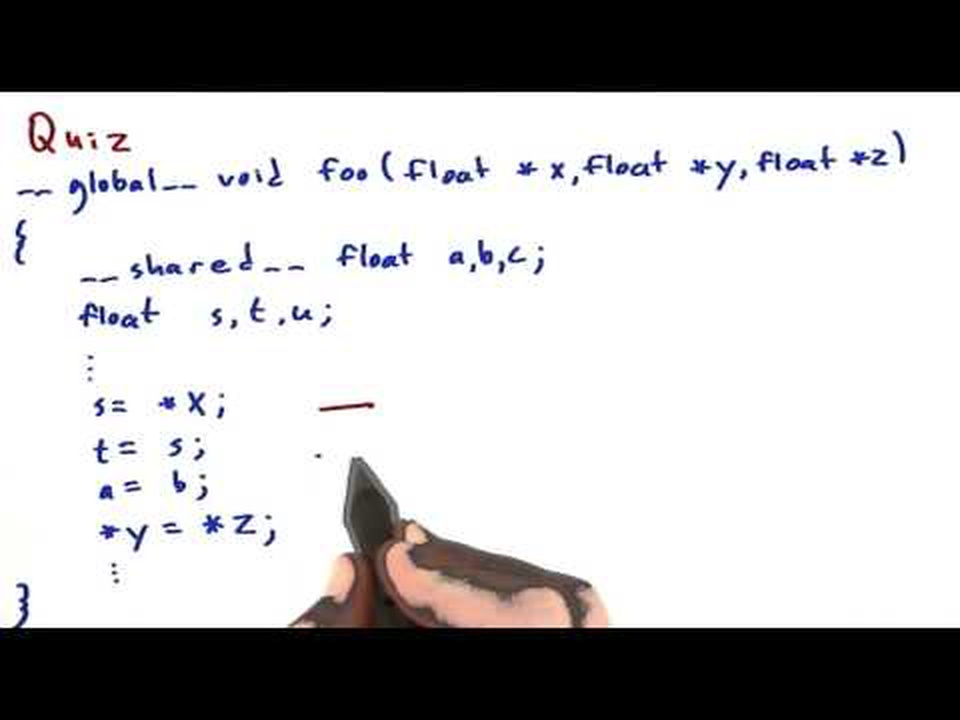 Quiz
__global__ void foo(float *x, float *y, float *z)
{
__shared__ float a,b,c;
float s,t,u;
⋮
s= *x;
t= s;
a= b;
*y= *z;
⋮
}